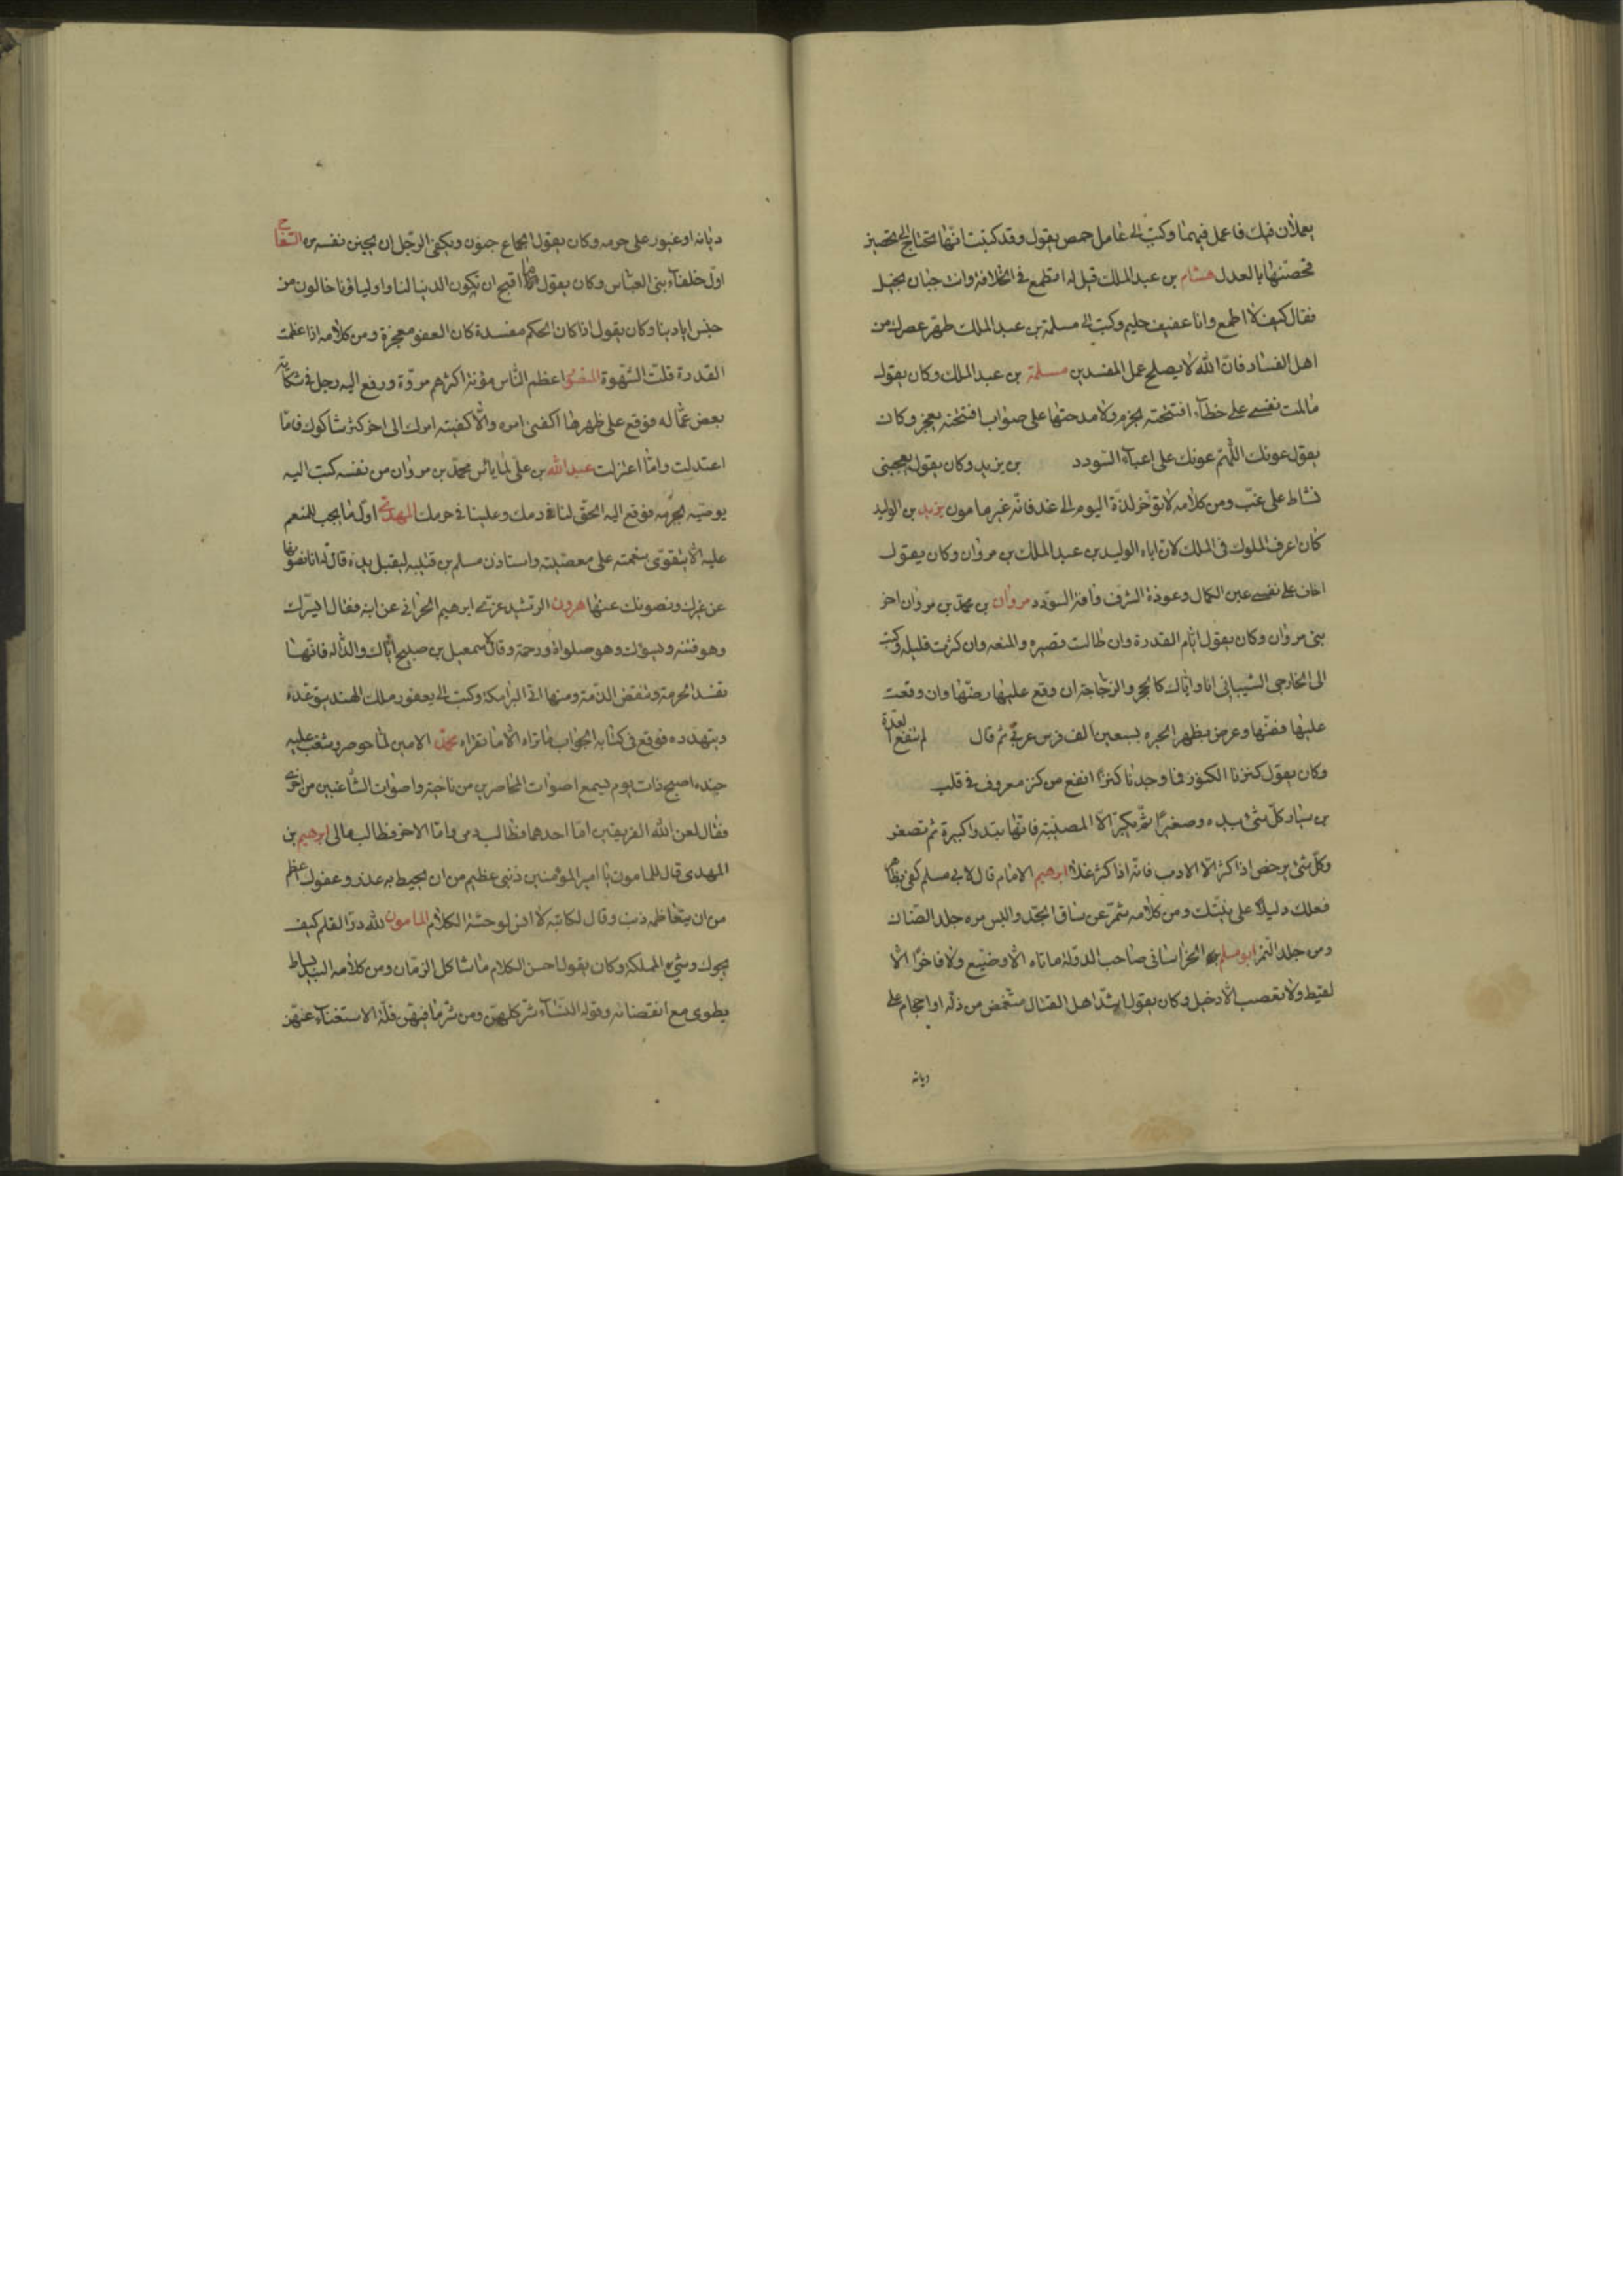 يعملان فيك فاعمل فيهما وكتب الى عامل حمص يقول وقد كتبت انها تحتاج الى تحصين
تحصنها بالعدل هشام بن عبد الملك قيل له اتطمع في الخلافة وانت جبان بخيل
فقال كيف لا اطمع وانا عفيف حليم وكتب الى مسلمة بن عبد الملك طهر عصرك من
اهل الفساد فان الله لا يصلح عمل المفسدين مسلمة بن عبد الملك وكان يقول
ما لمت نفسي على خطاء افتتحته بحزم ولا مدحتها على صواب افتتحته بعجز وكان
يقول عونك اللهم عونك على اعباء السودد بن يزيد وكان يقول يعجبني
نشاط على غب ومن كلامه لا تؤخر لذة اليوم الى غد فانه غير مامون يزيد بن الوليد
كان اعرف الملوك في الملك لان اباه الوليد بن عبد الملك بن مروان وكان يقول
اخاف على نفسي عين الكمال وعوذة الشرف وافة السودد مروان بن محمد بن مروان اخر
بني مروان وكان يقول ايام القدرة وان طالت قصيره والمتعه وان كثرت قليله وكتب
الى الخارجي الشيباني انا واياك كالحجر والزجاجة ان وقع عليها رضها وان وقعت
عليها فضها وعرض بظهر الحيره بسبعين الف فرس عربي ثم قال لم تنفع العدة
وكان يقول كنزنا الكنوز فما وجدنا كنزا انفع من كنز معروف في قلب
بن سيار كل شئ يبدء وصغيرا ثم يكبر الا المصيبة فانها تبتدء كبيرة ثم تصغر
وكل شئ يرخص اذا كثر الا الادب فانه اذا كثر غلا ابرهيم الامام قال لابي مسلم كفى بظاهر
فعلك دليلا على نيتك ومن كلامه شمر عن ساق الجد والبس مره جلد الضان
ومن جلد النمر ابو مسلم الخراساني صاحب الدولة ما تاه الا وضيع ولا فاخر الا
لقيط ولا تعصب الا دخيل وكان يقول اشد اهل القتال ممتعض من ذلة او احجام على
ديانه
ديانه او غيور على حرمه وكان يقول الجماع جنون ويكفي الرجل ان يجنن نفسه من السفاح
اول خلفاء بني العباس وكان يقول ما اقبح ان تكون الدنيا لنا واوليائنا خالون من
حبس ايادينا وكان يقول اذا كان الحكم مفسدة كان العفو معجزة ومن كلامه اذا عظمت
القدرة قلت الشهوة المنصور اعظم الناس مؤنة اكثرهم مروة ورفع اليه رجل في شكاية
بعض عماله فوقع على ظهرها اكفني امره والا كفيته امرك الى اخر كثر شاكوك فاما
اعتدلت واما اعتزلت عبد الله بن علي لما يائس محمد بن مروان من نفسه كتب اليه
يوصيه بحرمه فوقع اليه الحق لنا في دمك وعلينا في حرمك المهدي اول ما يجب للمنعم
عليه الا يتقوى بنعمته على معصيته واستاذن مسلم بن قتيبه ليقبل يده قال له انا نصونها
عن غيرك ونصونك عنها هرون الرشيد عزى ابرهيم الحراني عن ابنه فقال ايسرك
وهو فتنه ويسوئك وهو صلواة ورحمة وقال لاسمعيل بن صبيح اياك والدالة فانها
تفسد الحرمة وتنقض الذمة ومنها اتي البرامكة وكتب الى يعفور ملك الهند يتوعده
ويتهدده فوقع في كتابه الجواب ما تراه الا ما تقراه محمد الامين لما حوصر وشغب عليه
جنده اصبح ذات يوم يسمع اصوات المحاصرين من ناحية واصوات الشاغبين من اخرى
فقال لعن الله الفريقين اما احدهما فطالب دمي واما الاخر فطالب مالي ابرهيم بن
المهدي قال للمامون يا امير المؤمنين ذنبي عظيم من ان يحيط به عذر وعفوك اعظم
من ان يتعاظمه ذنب وقال لكاتبه لا ادن لوحشة الكلام المامون لله در القلم كيف
يحوك وشي المملكة وكان يقول احسن الكلام ما شاكل الزمان ومن كلامه النبيذ بساط
يطوى مع انقضائه وقوله النساء شر كلهن ومن شر ما فيهن قلة الاستغناء عنهن